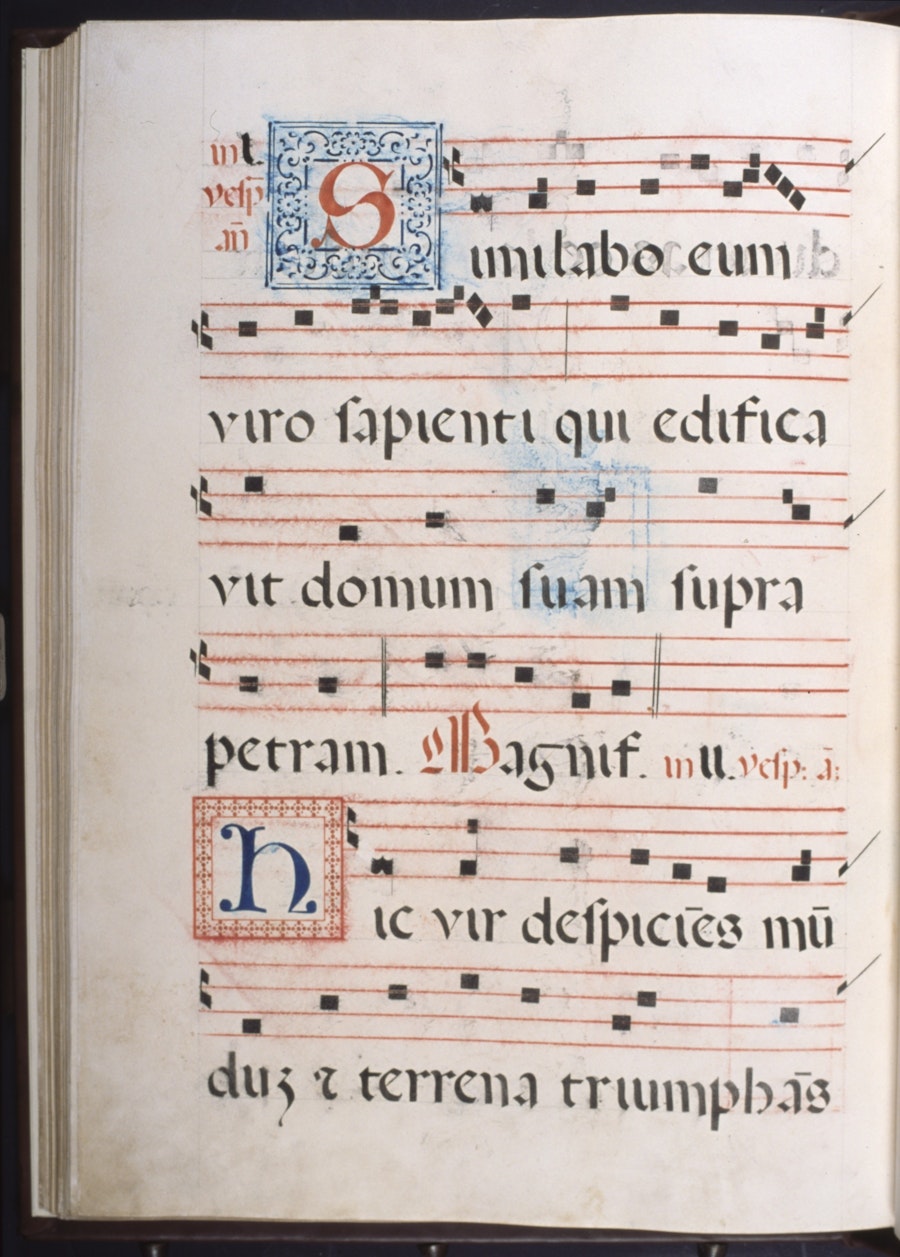 in I.
vesp̄
an̄
Similabo eum
viro ſapienti qui edifica
vit domum ſuam ſupra
petram. Magnif. in II. veſp: ā:
hic vir deſpiciēs mū
duʒ ⁊ terrena triumphās